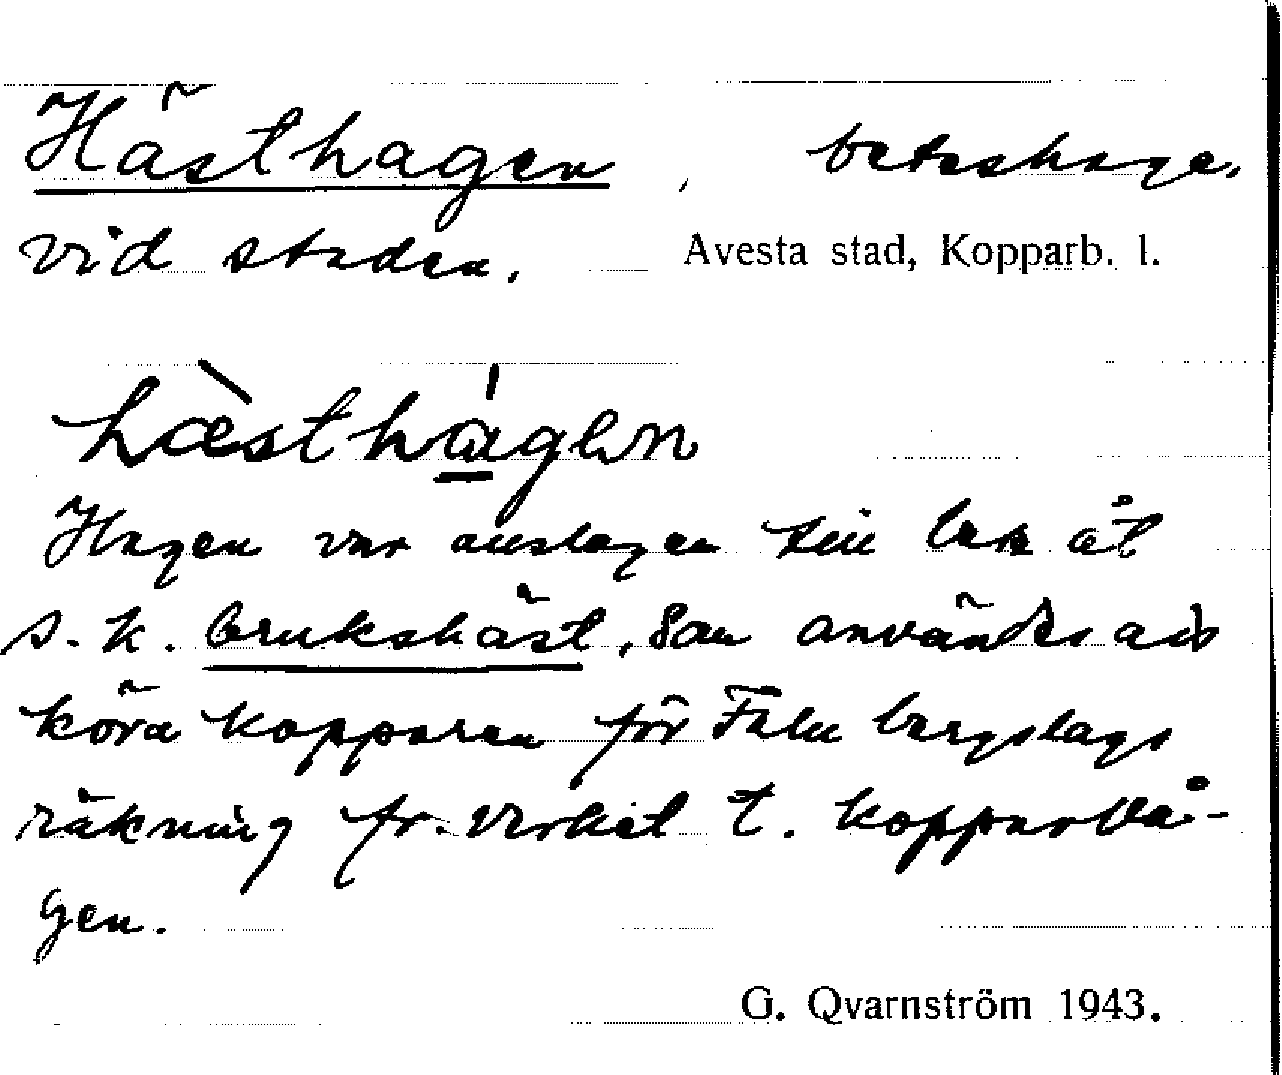 Hästhagen, betashage,
vid staden. Avesta stad, Kopparb. l.
hæ̀sthágen
Hagen var anslagen till bete åt
s.k. brukshäst, som användes att
köra kopparen för Falu bergslags
räkning fr. verket t. kopparvå-
gen.
G. Qvarnström 1943.